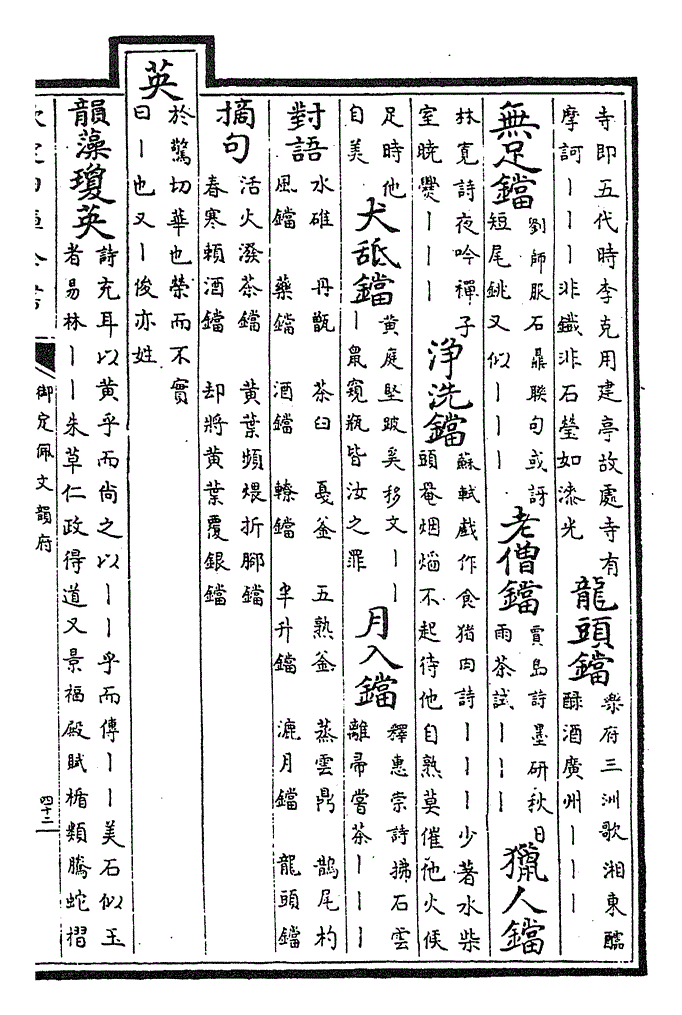 寺即五代時李克用建亭故處寺有
摩訶丨丨丨非鐵非石瑩如漆光
龍頭鐺
樂府三洲歌湘東醽
醁酒廣州丨丨丨
無足鐺
劉師服石鼎聯句或訝
短尾銚又似丨丨丨
老僧鐺
賈島詩墨研秋日
雨茶試丨丨丨
獵人鐺
林寛詩夜吟禪子
室曉爨丨丨丨
淨洗鐺
蘇軾戲作食猪肉詩丨丨丨少著水柴
頭罨烟燄不起待他自熟莫催他火候
足時他
自美
犬舐鐺
黃庭堅跛奚移文丨丨
丨鼠窺瓶皆汝之罪
月入鐺
釋惠崇詩拂石雲
離帚嘗茶丨丨丨
對語
水碓 丹甑 茶臼 戛釡 五熟釡 蒸雲鼎 鵲尾杓
風鐺 藥鐺 酒鐺 轑鐺 半升鐺 漉月鐺 龍頭鐺
摘句
活火潑茶鐺 黃葉頻煨折脚鐺
春寒頼酒鐺 却將黃葉覆銀鐺
英
於驚切華也榮而不實
曰丨也又丨俊亦姓
韻藻
瓊英
詩充耳以黃乎而尚之以丨丨乎而傳丨丨美石似玉
者易林丨丨朱草仁政得道又景福殿賦楯類騰蛇槢
御定佩文韻府
四十二